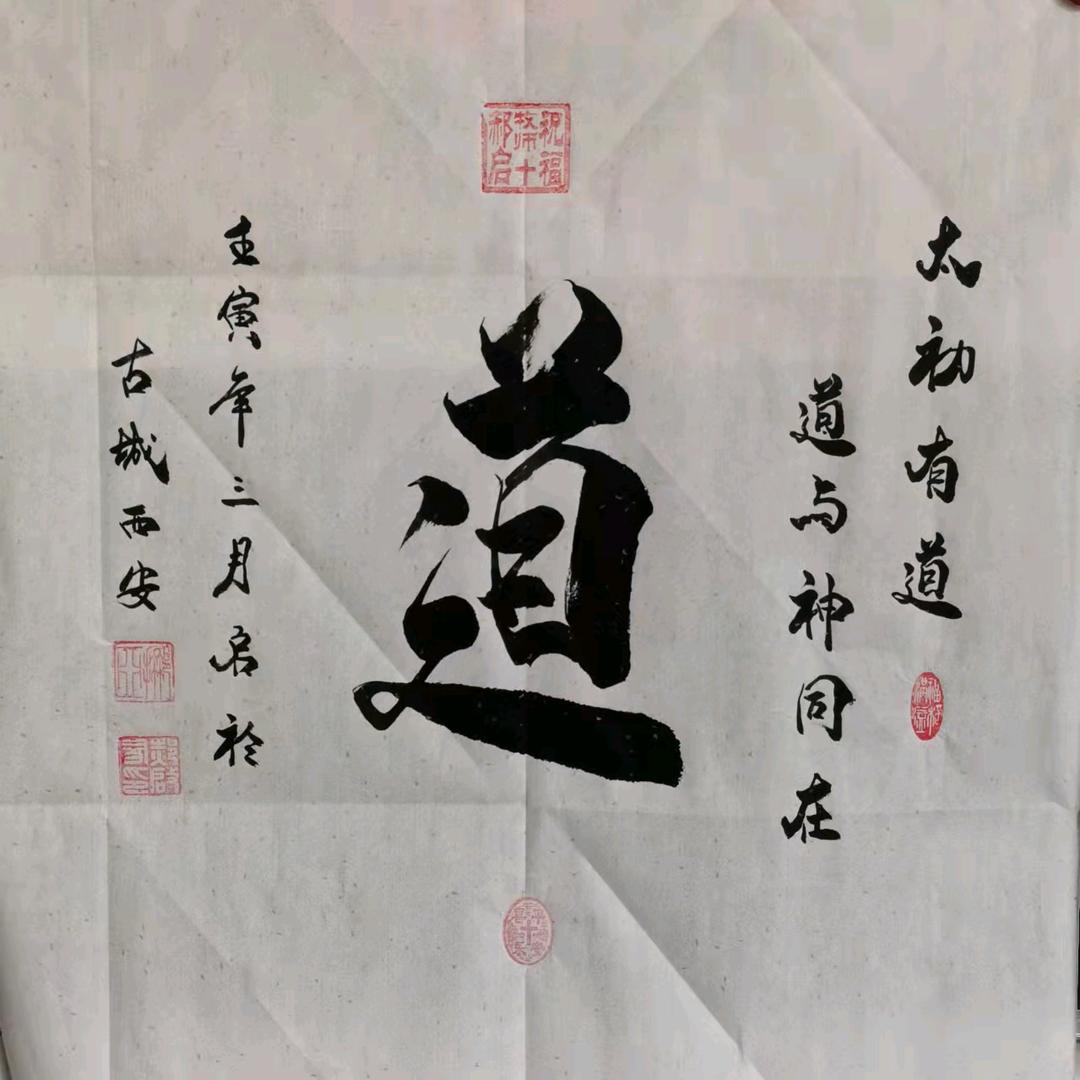 太初有道
道与神同在
道
壬寅年三月启於
古城西安
祝福
牧师十
郝启